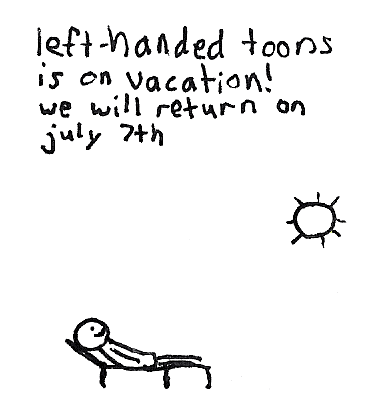 left-handed toons
is on vacation!
we will return on
july 7th